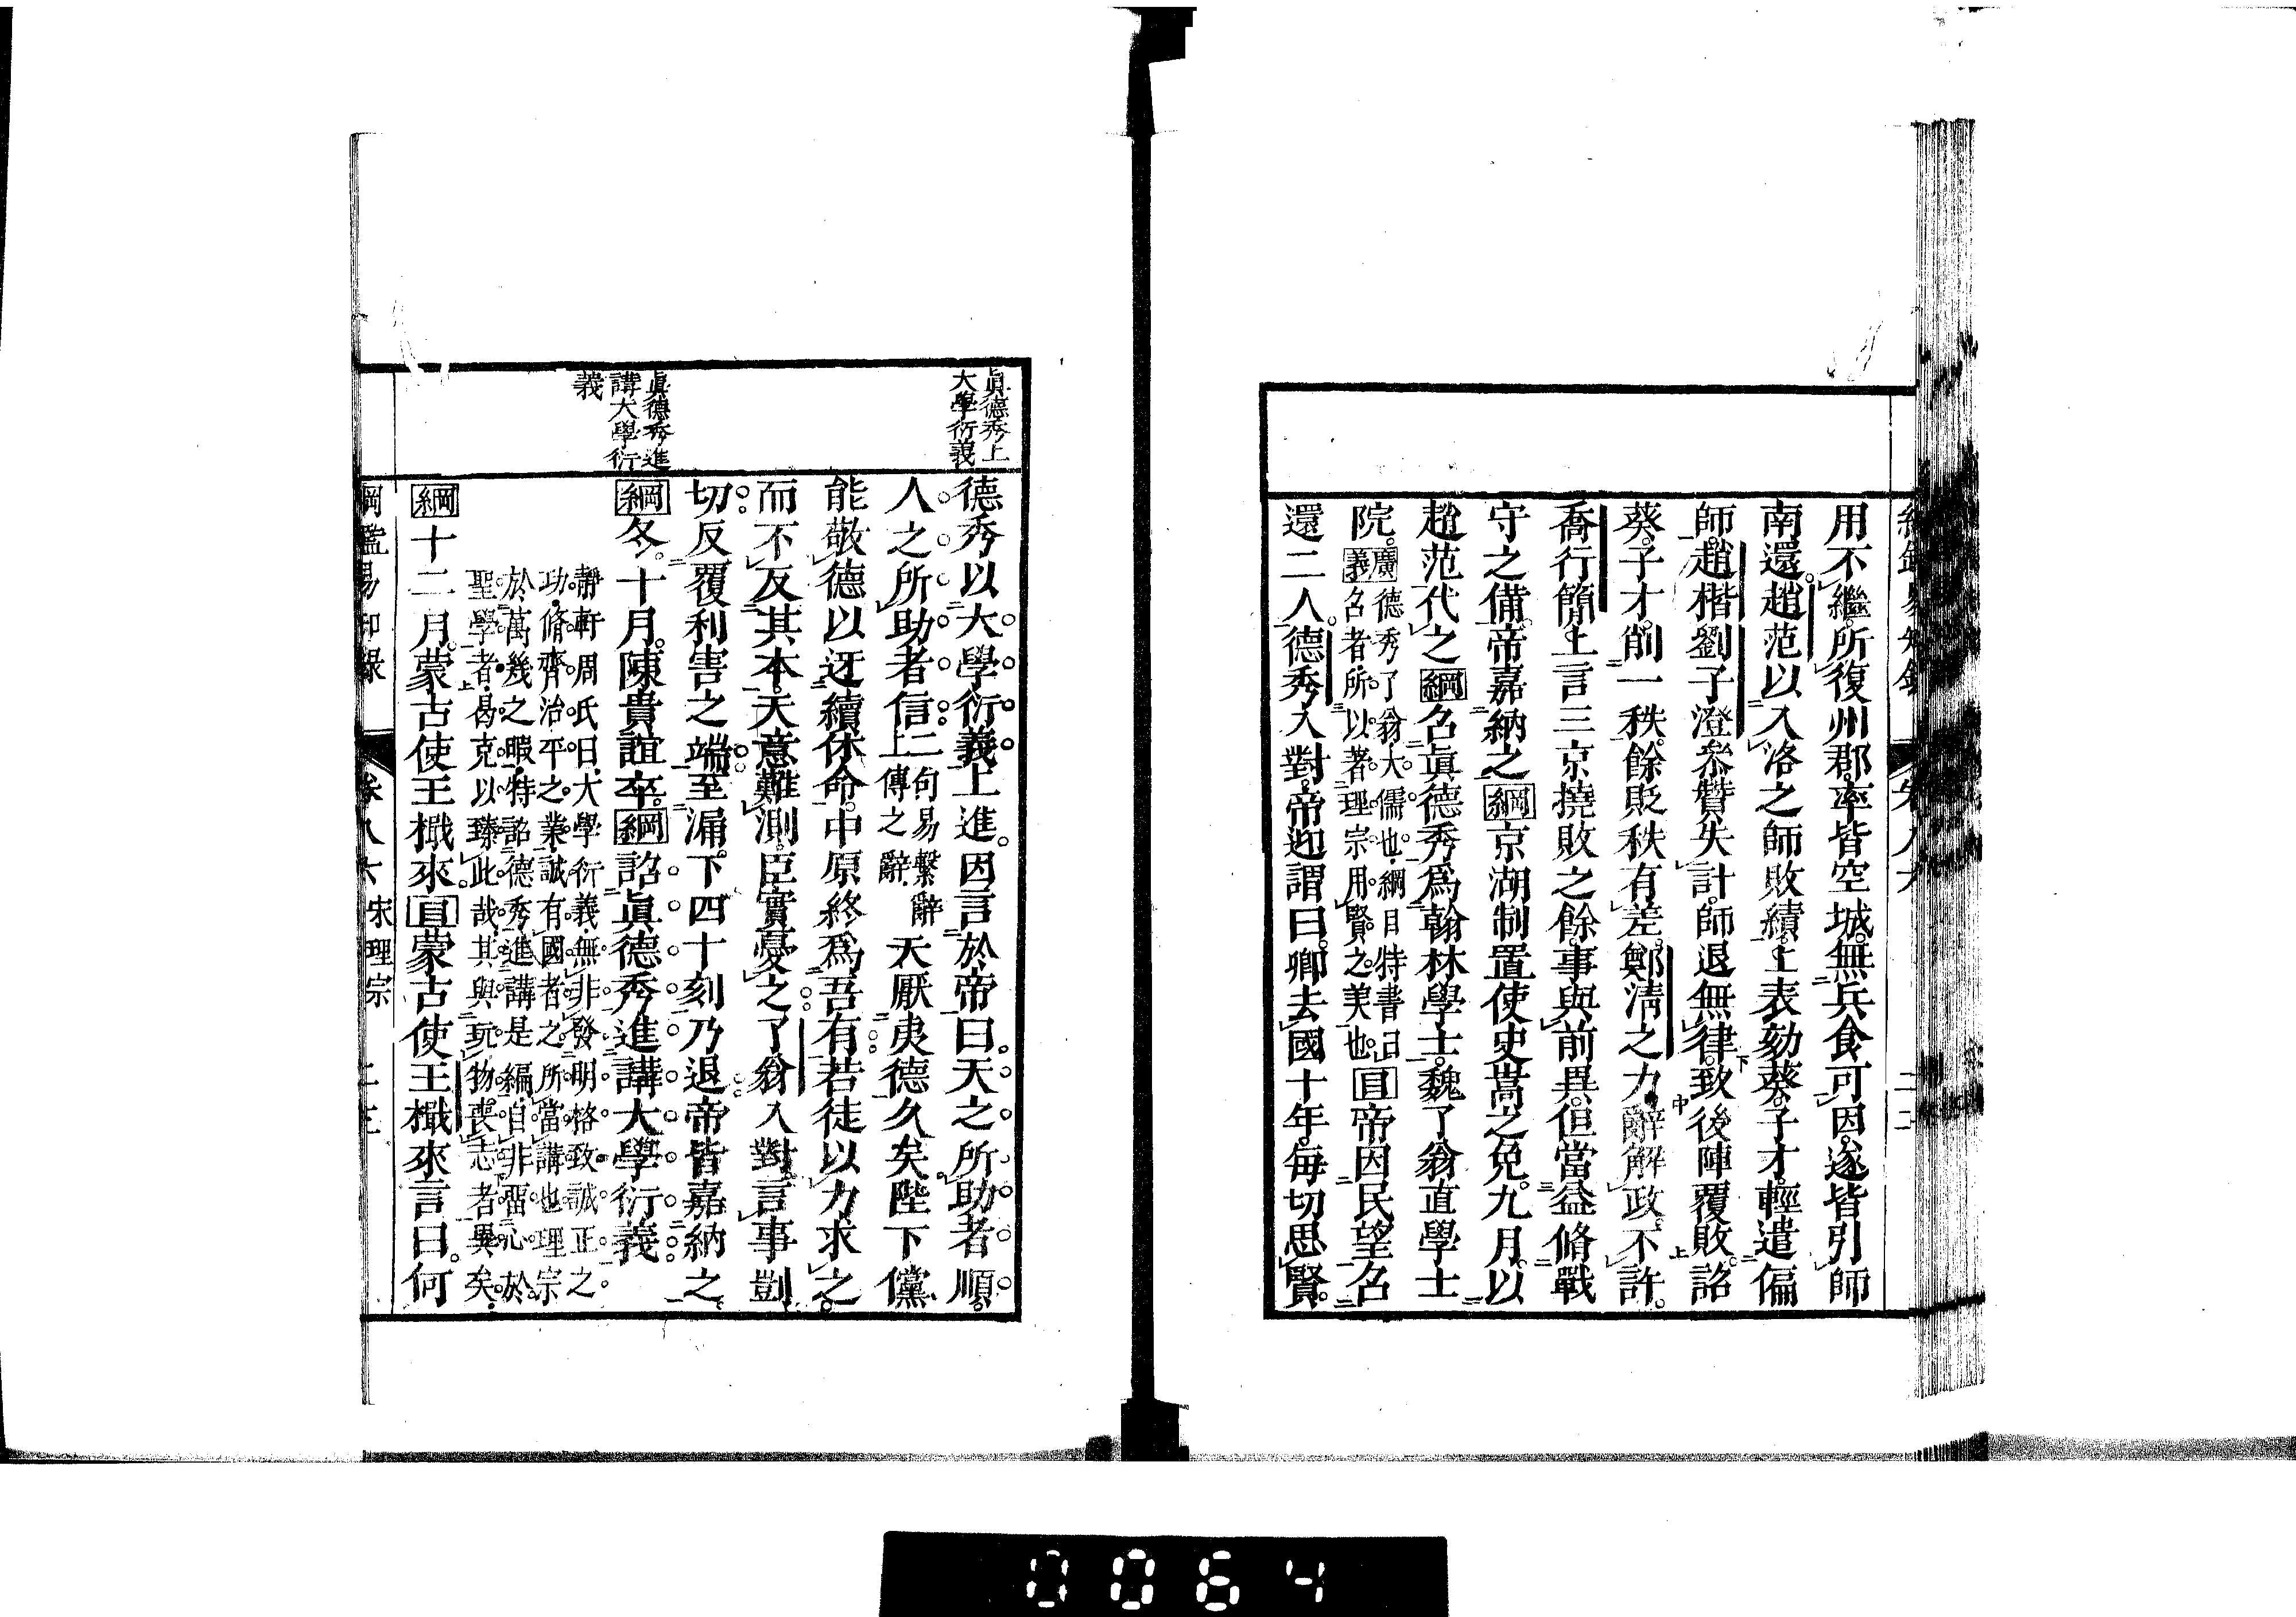 用不繼所復州郡率皆空城無兵食可因遂皆引師
南還趙范以入洛之師敗績上表劾葵子才輕遣偏
師趙楷劉子澄參贊失計師退無律致後陣覆敗詔
葵子才削一秩餘貶秩有差鄭清之力辭解政不許
喬行簡上言三京撓敗之餘事與前異但當益脩戰
守之備帝嘉納之綱京湖制置使史嵩之免九月以
趙范代之綱召眞德秀爲翰林學士魏了翁直學士
院廣義德秀了翁大儒也綱目特書曰召者所以著理宗用賢之美也目帝因民望召
還二人德秀入對帝迎謂曰卿去國十年每切思賢
眞德秀上
大學衍義
德秀以大學衍義上進因言於帝曰天之所助者順
人之所助者信二句易繫辭上傳之辭天厭夷德久矣陛下儻
能敬德以迓續休命中原終爲吾有若徒以力求之
而不反其本天意難測臣實憂之了翁入對言事剴
切反覆利害之端至漏下四十刻乃退帝皆嘉納之
眞德秀進
講大學衍
義
綱冬十月陳貴誼卒綱詔眞德秀進講大學衍義
靜軒周氏曰大學衍義無非發明格致誠正之
功脩齊治平之業誠有國者之所當講也理宗
於萬幾之暇特詔德秀進講是編自非畱心於
聖學者曷克以臻此哉其與玩物喪志者異矣
綱十二月蒙古使王檝來目蒙古使王檝來言曰何
綱鑑易知錄 卷八六 宋理宗